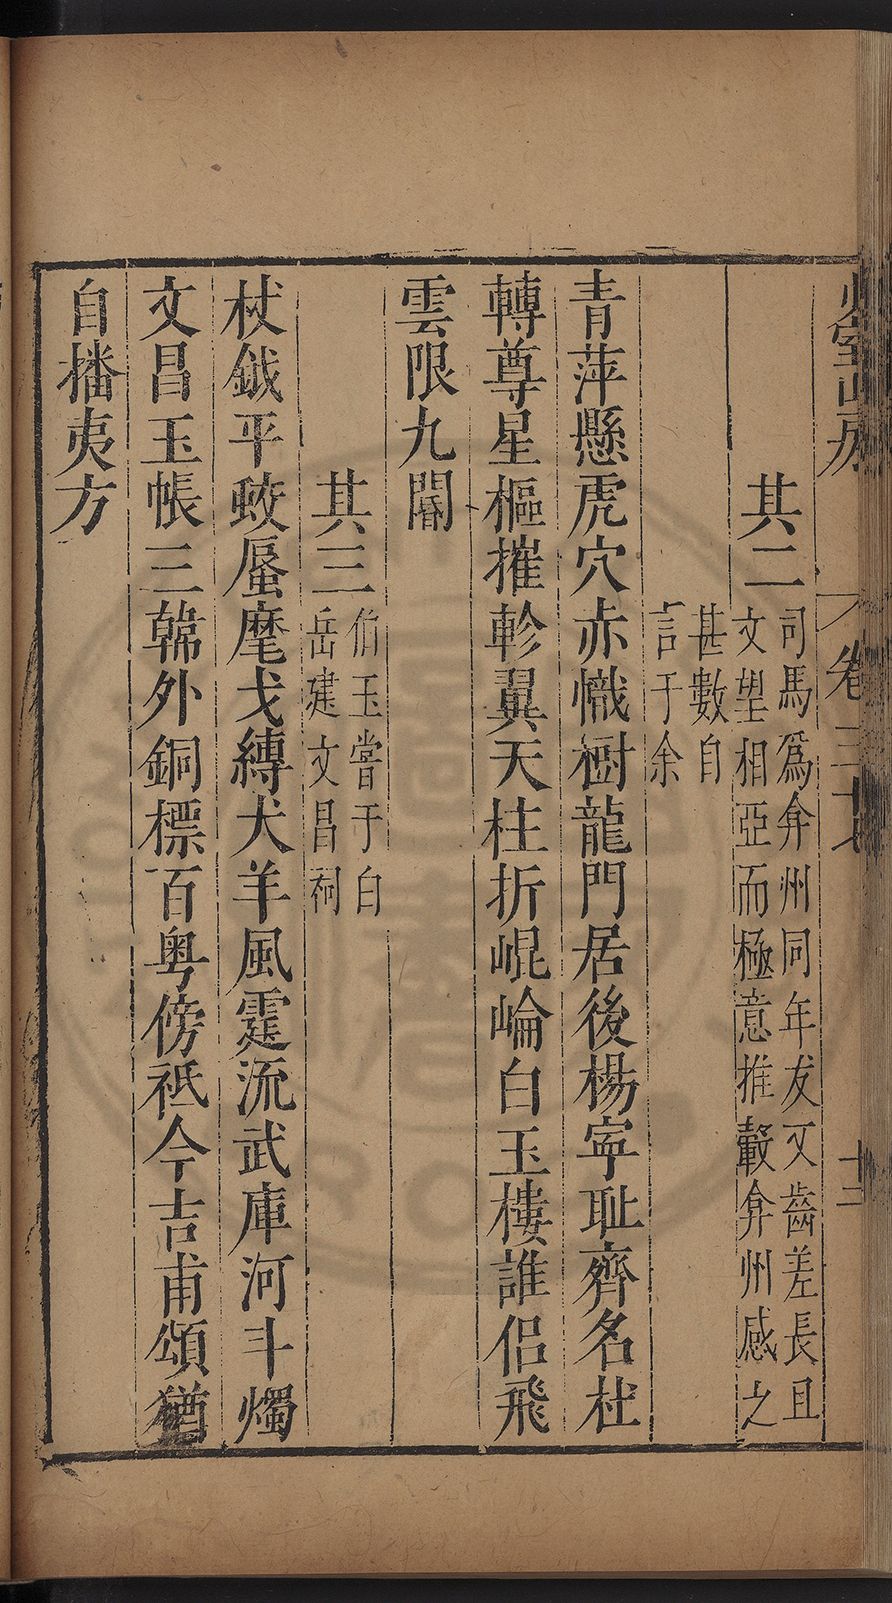 少室山房
卷三十八
十三
其二
司馬爲弇州同年友又齒差長且
文望相亞而極意推轂弇州感之
甚數自
言于余
青萍懸虎穴赤幟樹龍門居後楊寧耻齊名杜
轉尊星樞摧軫翼天柱折崐崘白玉樓誰侣飛
雲限九閽
其三
伯玉嘗于白
岳建文昌祠
杖鉞平蛟蜃麾戈縛犬羊風霆流武庫河斗燭
文昌玉帳三韓外銅標百粤傍祗今吉甫頌猶
自播夷方